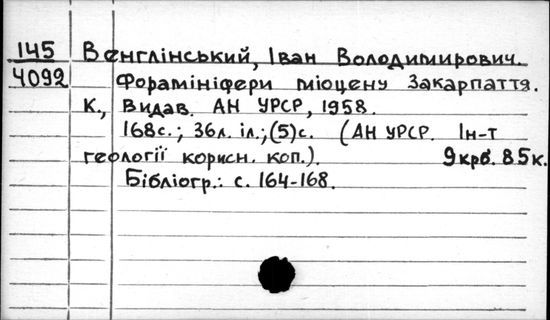 145 Венглінський, Іван Володимирович.
4092 Форамініфери міоцену Закарпаття.
К., Видав. АН УРСР, 1958.
168с.; 36л. іл.; (5)с. (АН УРСР. Ін-т
геології корисн. коп.). 9крб. 85к.
Бібліогр.: с. 164-168.